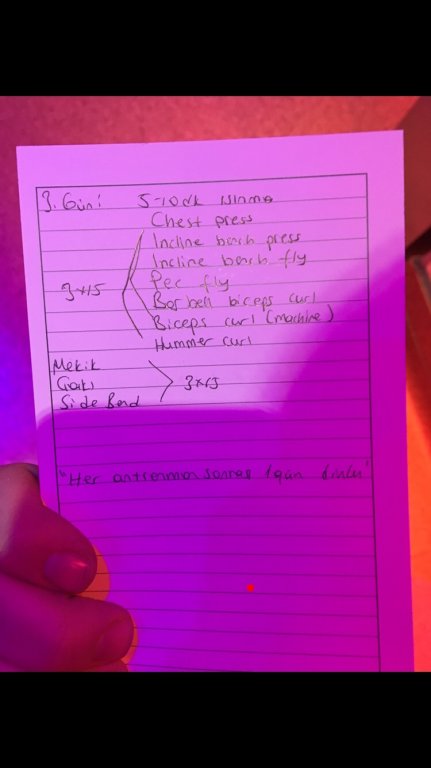 3. Gün: 5-10 dk ısınma
Chest press
Incline bench press
Incline bench fly
3x15 Pec fly
Barbell biceps curl
Biceps curl (machine)
Hummer curl
Mekik
3x15
Side Bend
"Her antrenman sonrası 1 gün